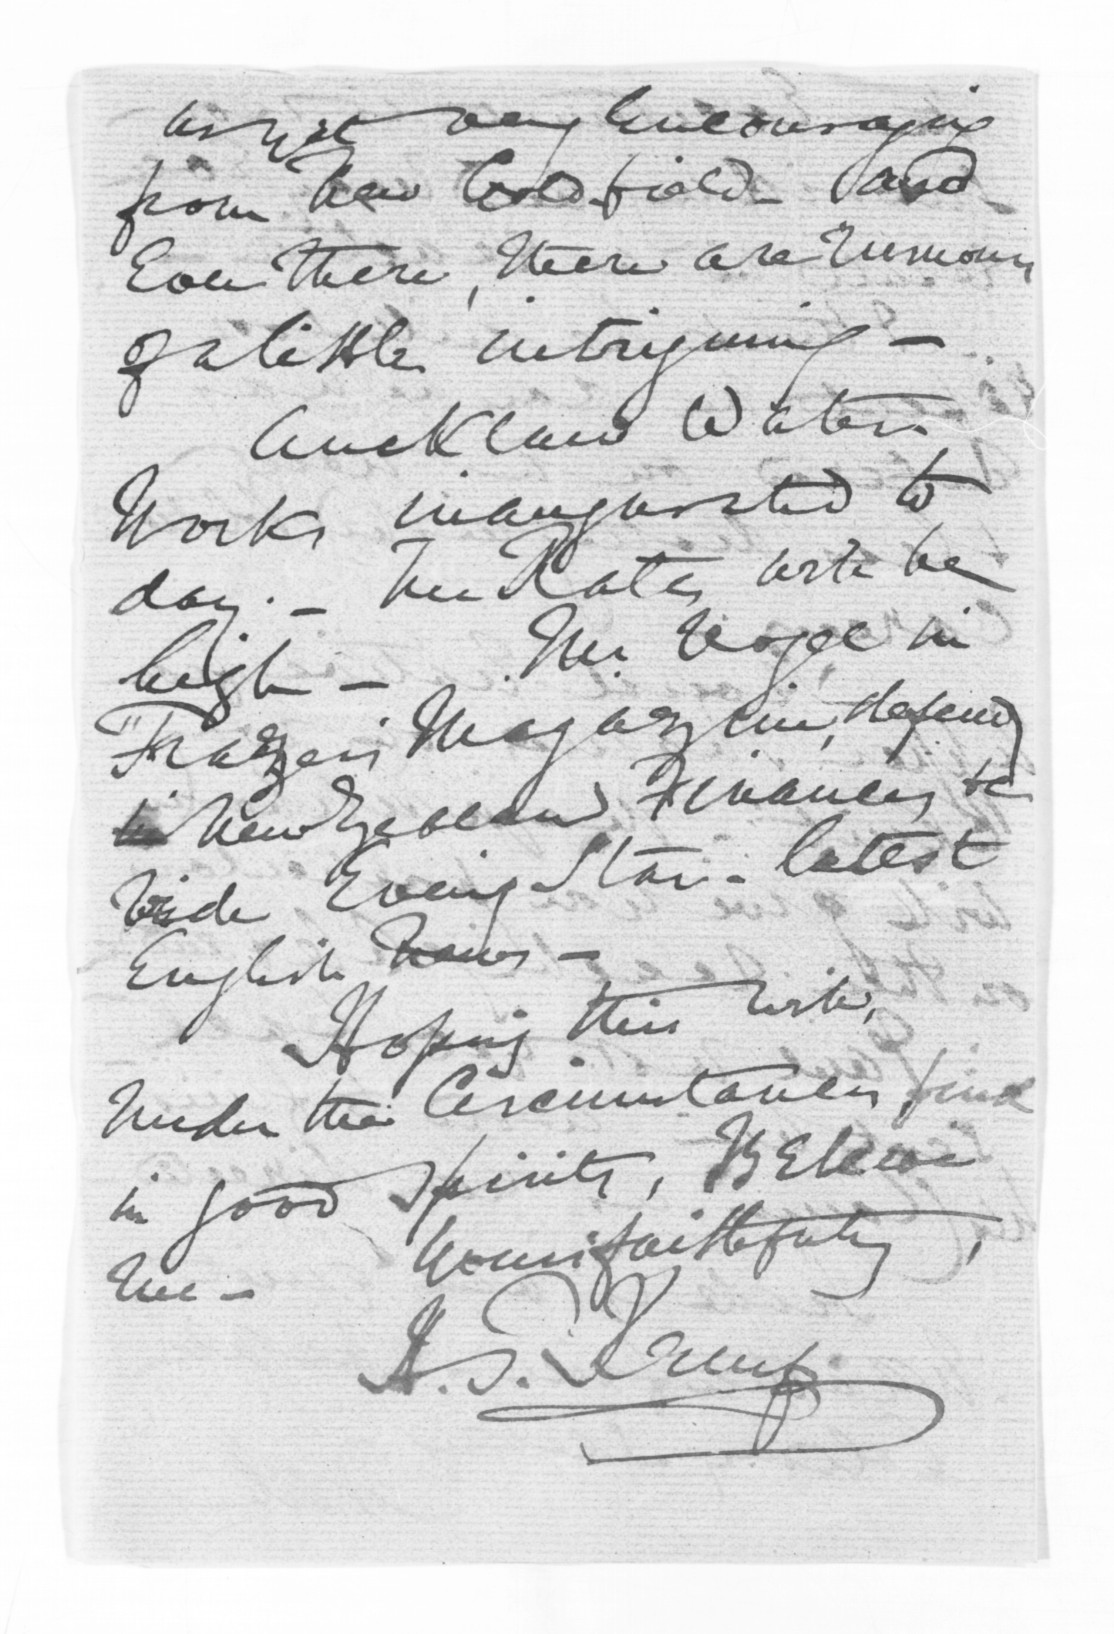 as yet very Encouraging
from New Goldfield - and
Even there, there are rumours
of a little intriguing -
Auckland Water
Works inaugurated to
day. - The Rates will be
high - Mr. Vogel in
"Frazers Magazine, defends
New Zealand Finances &c
Vide Evening Star - latest
English News -
Hoping this will,
Under the Circumstances, find
in good spirits, Believe
me - Yours faithfully,
H. T. Kemp